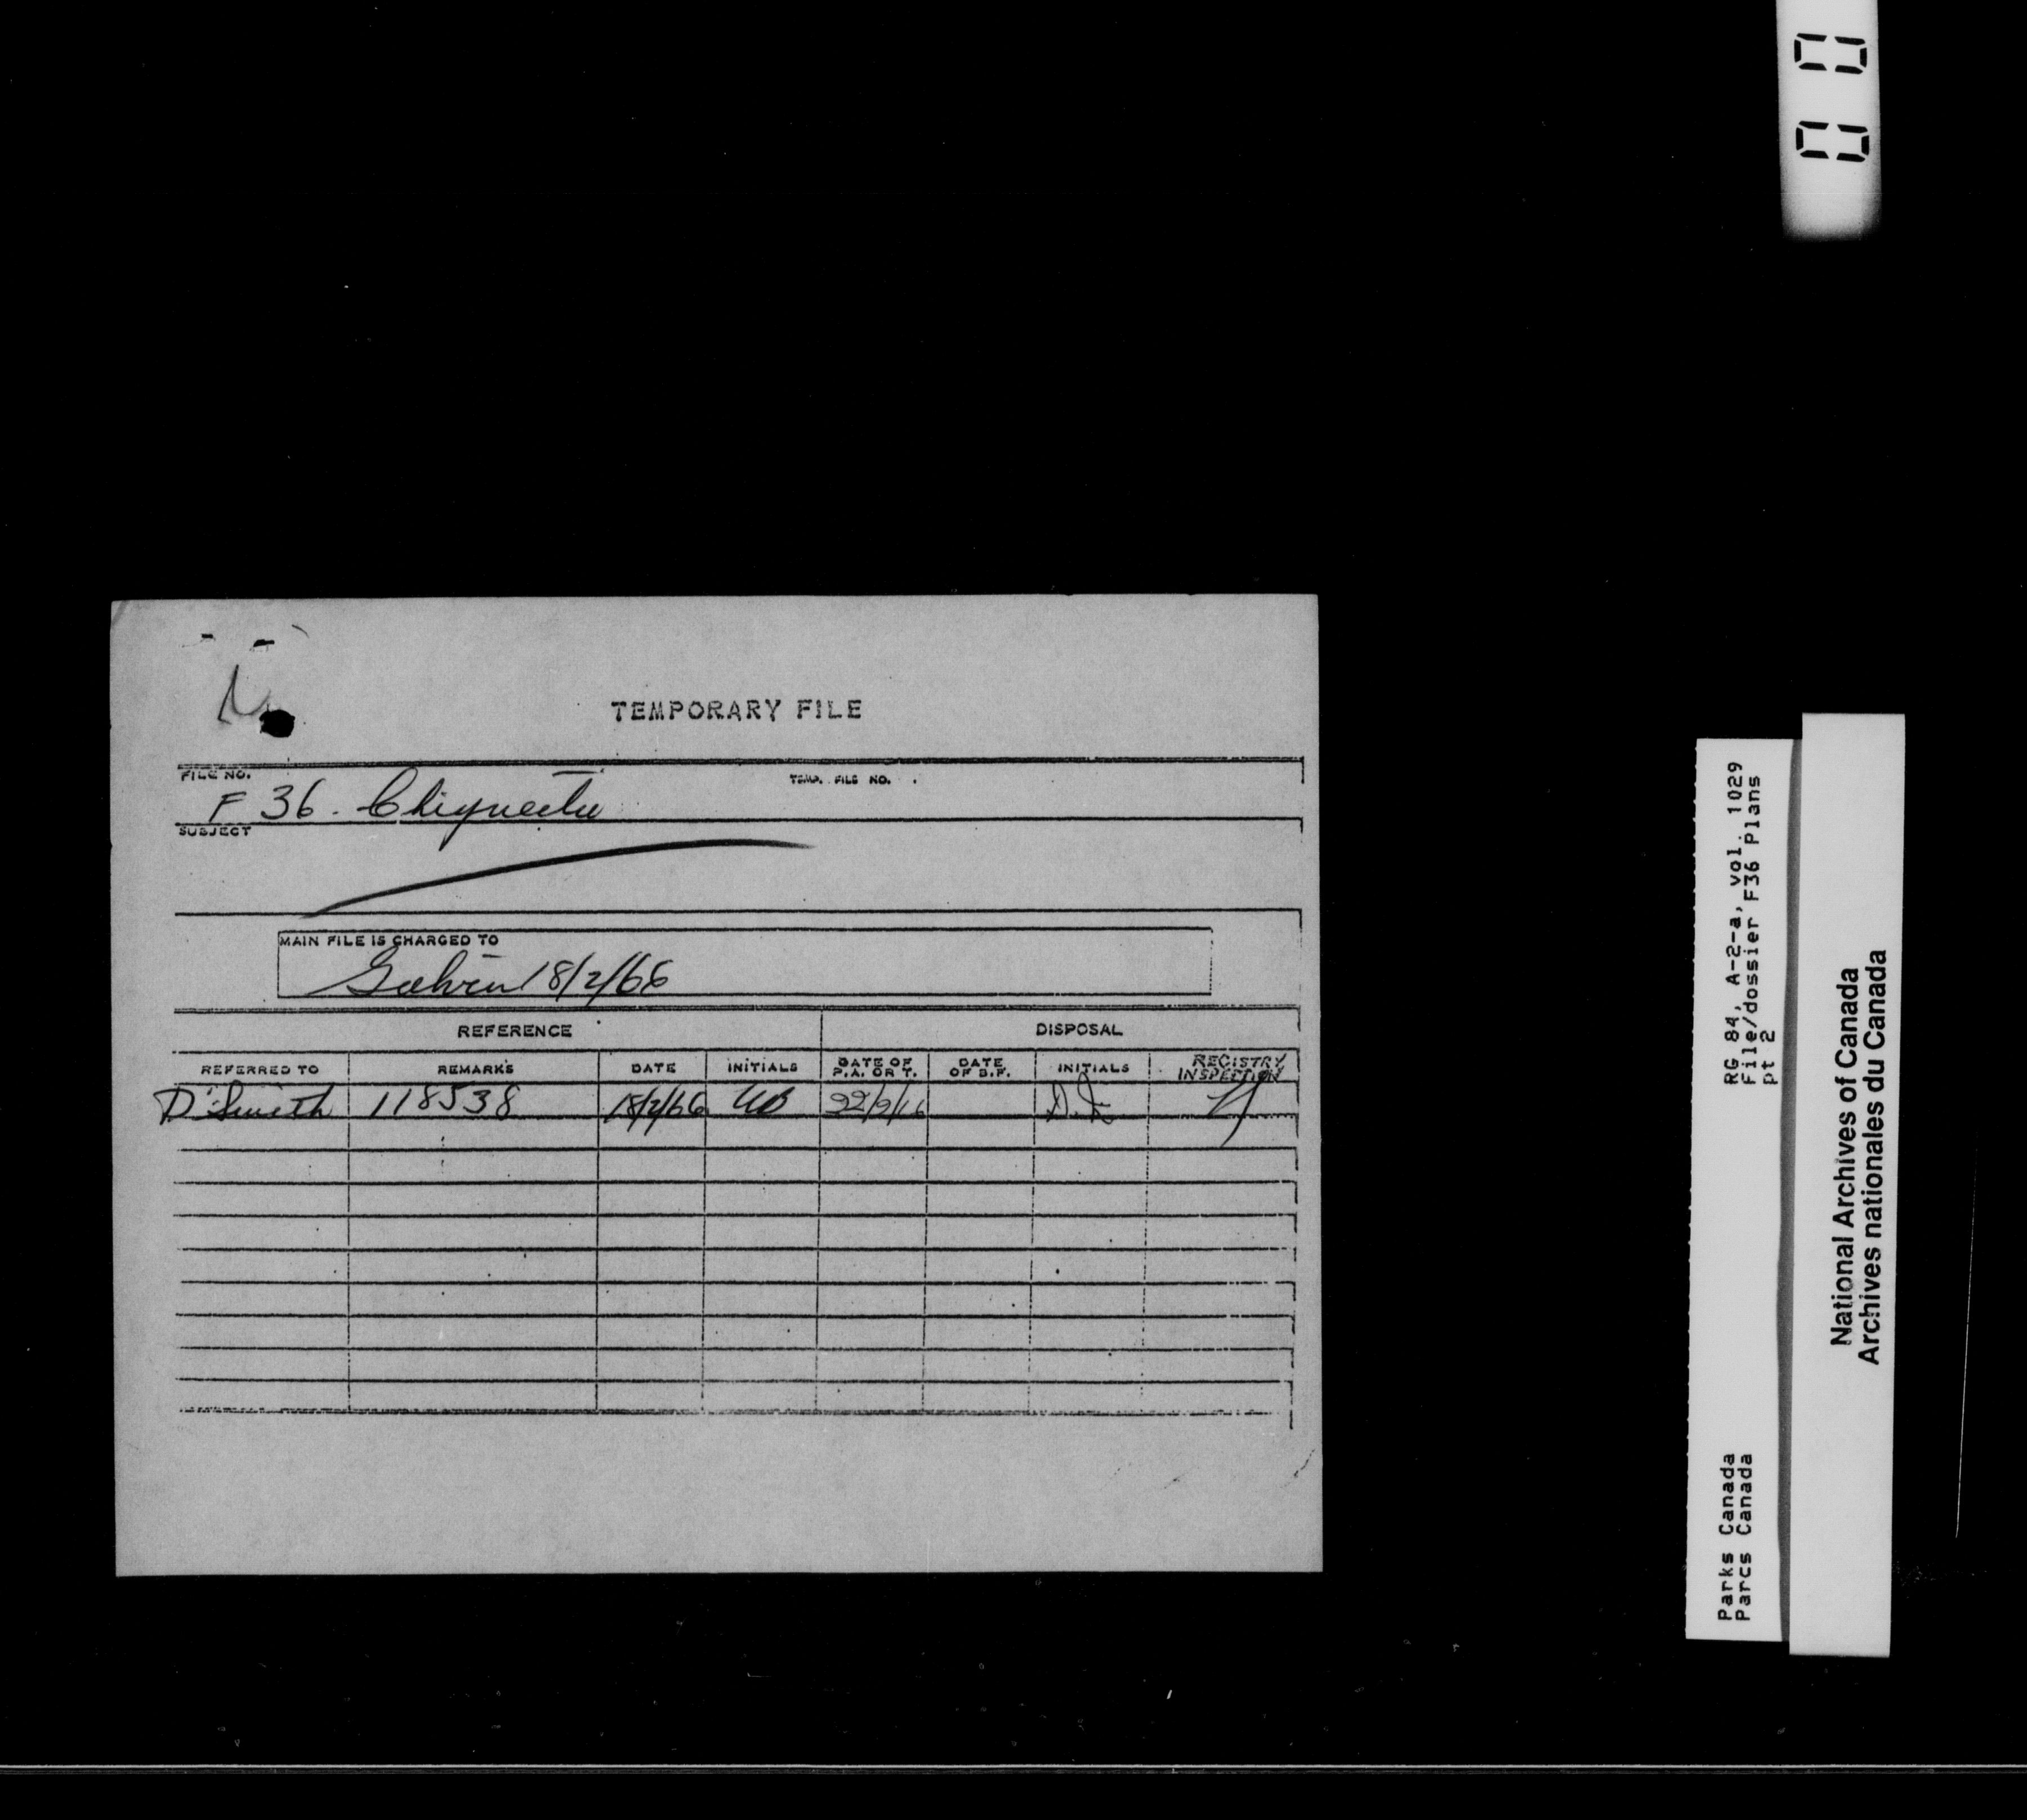 TEMPORARY FILE
FILE NO. TEMP. FILE NO.
F 36. Chignecto
SUBJECT
MAIN FILE IS CHARGED TO
18/2/66
REFERENCE DISPOSAL
REFERRED TO REMARKS DATE INITIALS DATE OF P.A. OR T. DATE OF B.F. INITIALS REGISTRY INSPECTION
D. Smith 118538 18/2/66
RG 84, A-2-a, vol. 1029
File/dossier F36 Plans
pt 2
Parks Canada
Parcs Canada
National Archives of Canada
Archives nationales du Canada